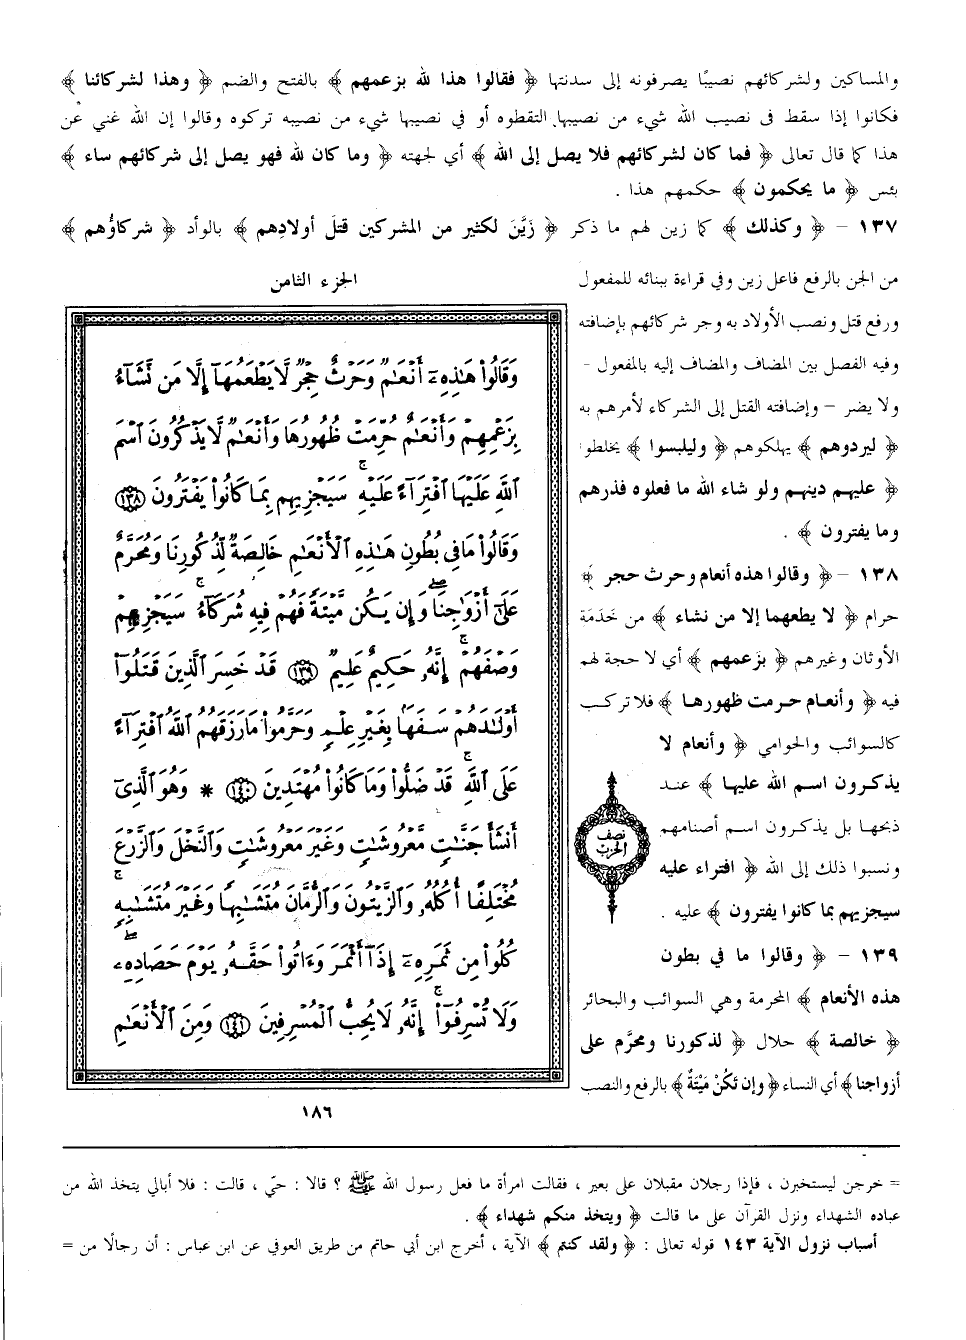 والمساكين ولشركائهم نصيبًا يصرفونه إلى سدنتها ﴿ فقالوا هذا لله بزعمهم ﴾ بالفتح والضم ﴿ وهذا لشركائنا ﴾
فكانوا إذا سقط فى نصيب الله شيء من نصيبها التقطوه أو في نصيبها شيء من نصيبه تركوه وقالوا إن الله غني عن
هذا كما قال تعالى ﴿ فما كان لشركائهم فلا يصل إلى الله ﴾ أي لجهته ﴿ وما كان لله فهو يصل إلى شركائهم ساء ﴾
بئس ﴿ ما يحكمون ﴾ حكمهم هذا .
١٣٧ – ﴿ وكذلك ﴾ كما زين لهم ما ذكر ﴿ زَيَّنَ لكثير من المشركين قتلَ أولادِهم ﴾ بالوأد ﴿ شركاؤُهم ﴾
من الجن بالرفع فاعل زين وفي قراءة ببنائه للمفعول
ورفع قتل ونصب الأولاد به وجر شركائهم بإضافته
وفيه الفصل بين المضاف والمضاف إليه بالمفعول –
ولا يضر – وإضافته القتل إلى الشركاء لأمرهم به
﴿ ليردوهم ﴾ يهلكوهم ﴿ وليلبسوا ﴾ يخلطوا
﴿ عليهم دينهم ولو شاء الله ما فعلوه فذرهم
وما يفترون ﴾ .
١٣٨ – ﴿ وقالوا هذه أنعام وحرث حجر ﴾
حرام ﴿ لا يطعمها إلا من نشاء ﴾ من خَدَمَة
الأوثان وغيرهم ﴿ بزعمهم ﴾ أي لا حجة لهم
فيه ﴿ وأنعام حرمت ظهورها ﴾ فلا تركب
كالسوائب والحوامي ﴿ وأنعام لا
يذكرون اسم الله عليها ﴾ عند
ذبحها بل يذكرون اسم أصنامهم
ونسبوا ذلك إلى الله ﴿ افتراء عليه
سيجزيهم بما كانوا يفترون ﴾ عليه .
١٣٩ – ﴿ وقالوا ما في بطون
هذه الأنعام ﴾ المحرمة وهي السوائب والبحائر
﴿ خالصة ﴾ حلال ﴿ لذكورنا ومحرَّم على
أزواجنا ﴾ أي النساء ﴿ وإن تَكُنْ مَيْتَةً ﴾ بالرفع والنصب
الجزء الثامن
وَقَالُوا۟ هَـٰذِهِۦٓ أَنْعَـٰمٌ وَحَرْثٌ حِجْرٌ لَّا يَطْعَمُهَآ إِلَّا مَن نَّشَآءُ
بِزَعْمِهِمْ وَأَنْعَـٰمٌ حُرِّمَتْ ظُهُورُهَا وَأَنْعَـٰمٌ لَّا يَذْكُرُونَ ٱسْمَ
ٱللَّهِ عَلَيْهَا ٱفْتِرَآءً عَلَيْهِ ۚ سَيَجْزِيهِم بِمَا كَانُوا۟ يَفْتَرُونَ ١٣٨
وَقَالُوا۟ مَا فِى بُطُونِ هَـٰذِهِ ٱلْأَنْعَـٰمِ خَالِصَةٌ لِّذُكُورِنَا وَمُحَرَّمٌ
عَلَىٰٓ أَزْوَٰجِنَا ۖ وَإِن يَكُن مَّيْتَةً فَهُمْ فِيهِ شُرَكَآءُ ۚ سَيَجْزِيهِمْ
وَصْفَهُمْ ۚ إِنَّهُۥ حَكِيمٌ عَلِيمٌ ١٣٩ قَدْ خَسِرَ ٱلَّذِينَ قَتَلُوٓا۟
أَوْلَـٰدَهُمْ سَفَهًۢا بِغَيْرِ عِلْمٍ وَحَرَّمُوا۟ مَا رَزَقَهُمُ ٱللَّهُ ٱفْتِرَآءً
عَلَى ٱللَّهِ ۚ قَدْ ضَلُّوا۟ وَمَا كَانُوا۟ مُهْتَدِينَ ١٤٠ * وَهُوَ ٱلَّذِىٓ
أَنشَأَ جَنَّـٰتٍ مَّعْرُوشَـٰتٍ وَغَيْرَ مَعْرُوشَـٰتٍ وَٱلنَّخْلَ وَٱلزَّرْعَ
مُخْتَلِفًا أُكُلُهُۥ وَٱلزَّيْتُونَ وَٱلرُّمَّانَ مُتَشَـٰبِهًا وَغَيْرَ مُتَشَـٰبِهٍ ۚ
كُلُوا۟ مِن ثَمَرِهِۦٓ إِذَآ أَثْمَرَ وَءَاتُوا۟ حَقَّهُۥ يَوْمَ حَصَادِهِۦ ۖ
وَلَا تُسْرِفُوٓا۟ ۚ إِنَّهُۥ لَا يُحِبُّ ٱلْمُسْرِفِينَ ١٤١ وَمِنَ ٱلْأَنْعَـٰمِ
نصف
الحزب
١٨٦
= خرجن ليستخبرن ، فإذا رجلان مقبلان على بعير ، فقالت امرأة ما فعل رسول الله ﷺ ؟ قالا : حيّ ، قالت : فلا أبالي يتخذ الله من
عباده الشهداء ونزل القرآن على ما قالت ﴿ ويتخذ منكم شهداء ﴾ .
أسباب نزول الآية ١٤٣ قوله تعالى : ﴿ ولقد كنتم ﴾ الآية ، أخرج ابن أبي حاتم من طريق العوفي عن ابن عباس : أن رجالًا من =